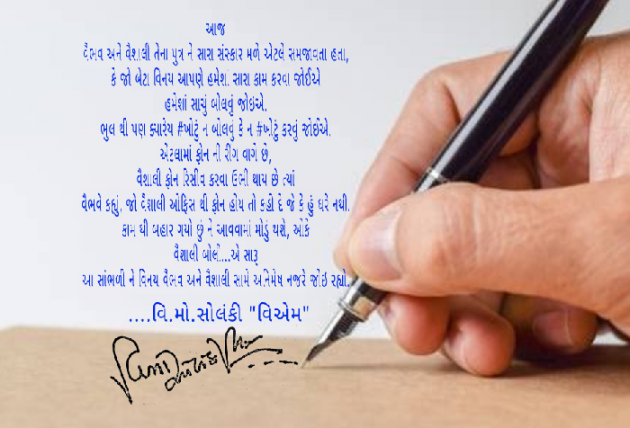 આજ
વૈભવ અને વૈશાલી તેના પુત્ર ને સારા સંસ્કાર મળે એટલે સમજાવતા હતા,
કે જો બેટા વિનય આપણે હમેશ. સારા કામ કરવા જોઈએ
હમેશાં સાચું બોલવું જોઇએ.
ભુલ થી પણ ક્યારેય #ખોટું ન બોલવું કે ન #ખોટું કરવું જોઈએ.
એટલામાં ફોન ની રીંગ વાગે છે,
વૈશાલી ફોન રિસીવ કરવા ઉભી થાય છે ત્યાં
વૈભવે કહ્યું. જો વૈશાલી ઓફિસ થી ફોન હોય તો કહી દે જે કે હું ઘરે નથી.
કામ થી બહાર ગયો છું ને આવવામાં મોડું થશે, ઓકે
વૈશાલી બોલી...એ સારૂ
આ સાંભળી ને વિનય વૈભવ અને વૈશાલી સામે અનિમેષ નજરે જોઇ રહ્યો.
....વિ.મો.સોલંકી "વિએમ"